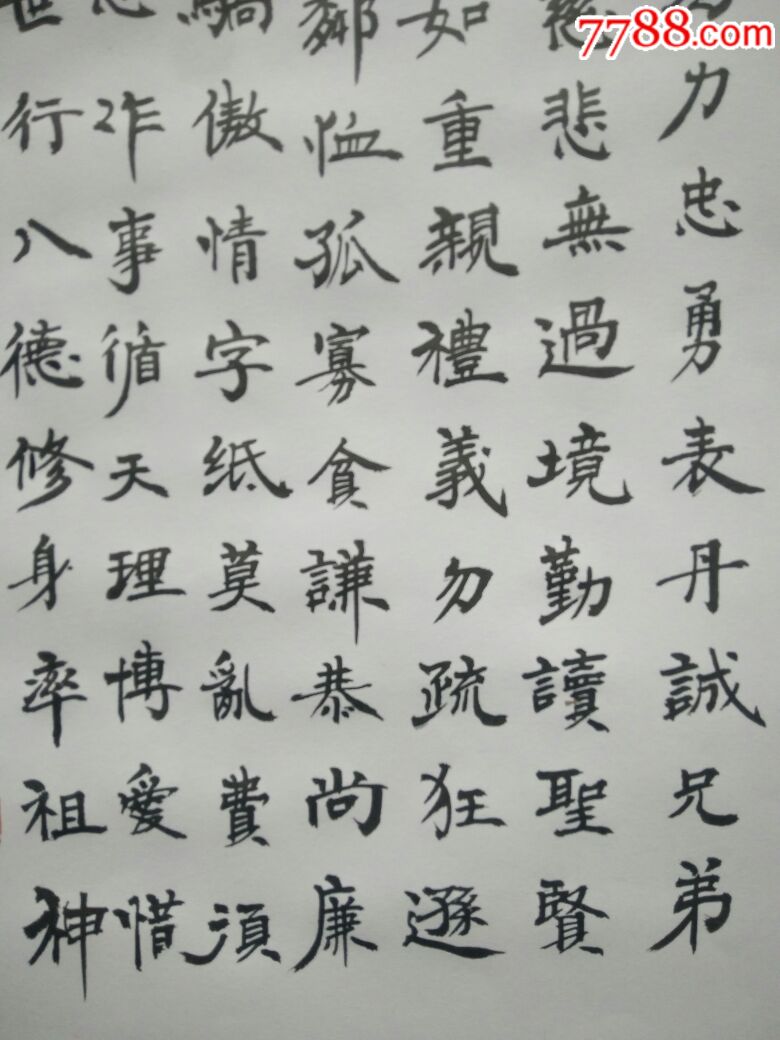 7788.com
力忠勇表丹誠兄弟
慈悲無過境勤讀聖賢
如重親禮義勿疏狂遜
鄰恤孤寡貪謙恭尚廉
傲情字紙莫亂費須
作事循天理博愛惜
世行八德修身率祖神